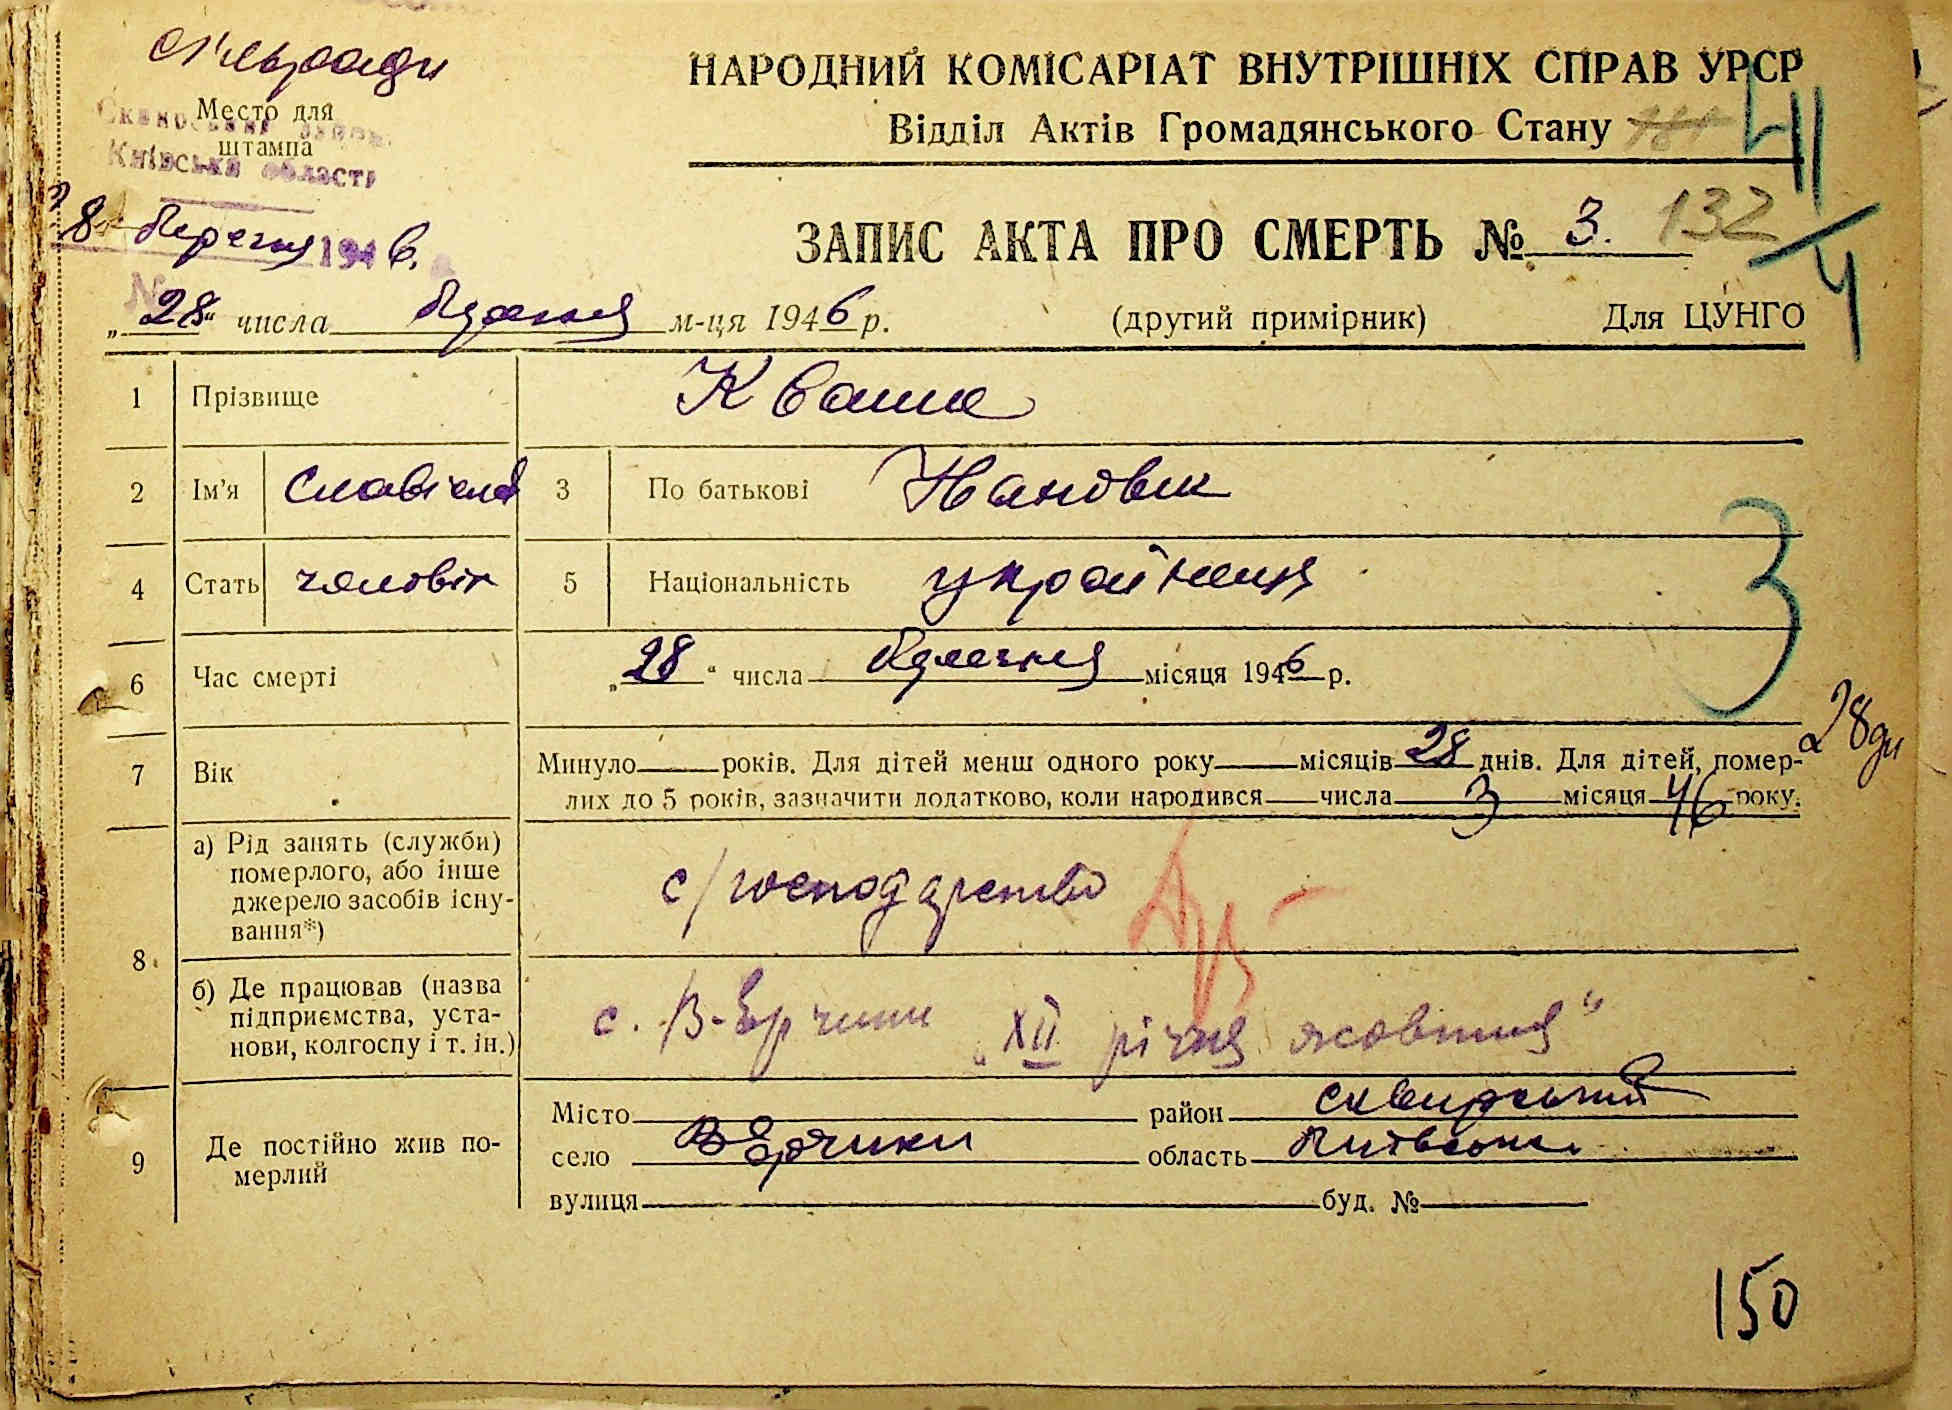 сільради
Место для
штампа
Сквирський район
Київська області
28 березня 1946.
№
НАРОДНИЙ КОМІСАРІАТ ВНУТРІШНІХ СПРАВ УРСР
Відділ Актів Громадянського Стану
ЗАПИС АКТА ПРО СМЕРТЬ № 3. 132
4
„28" числа березня м-ця 1946 р. (другий примірник) Для ЦУНГО
1 Прізвище Кваша
2 Ім'я 3 По батькові Іванович
4 Стать чоловік 5 Національність українець
3
6 Час смерті „28" числа березня місяця 1946 р.
7 Вік Минуло року. Для дітей менш одного року місяців 28 днів. Для дітей, помер-
лих до 5 років, зазначити додатково, коли народився числа 3 місяця 46 року.
28 дн
8 а) Рід занять (служби)
померлого, або інше
джерело засобів існу-
вання*)
с/господарство
б) Де працював (назва
підприємства, уста-
нови, колгоспу і т. ін.)
с. В-Єрчики „XII річчя жовтня"
9 Де постійно жив по-
мерлий
Місто район Сквирський
село В Єрчики область Київська
вулиця буд. №
150